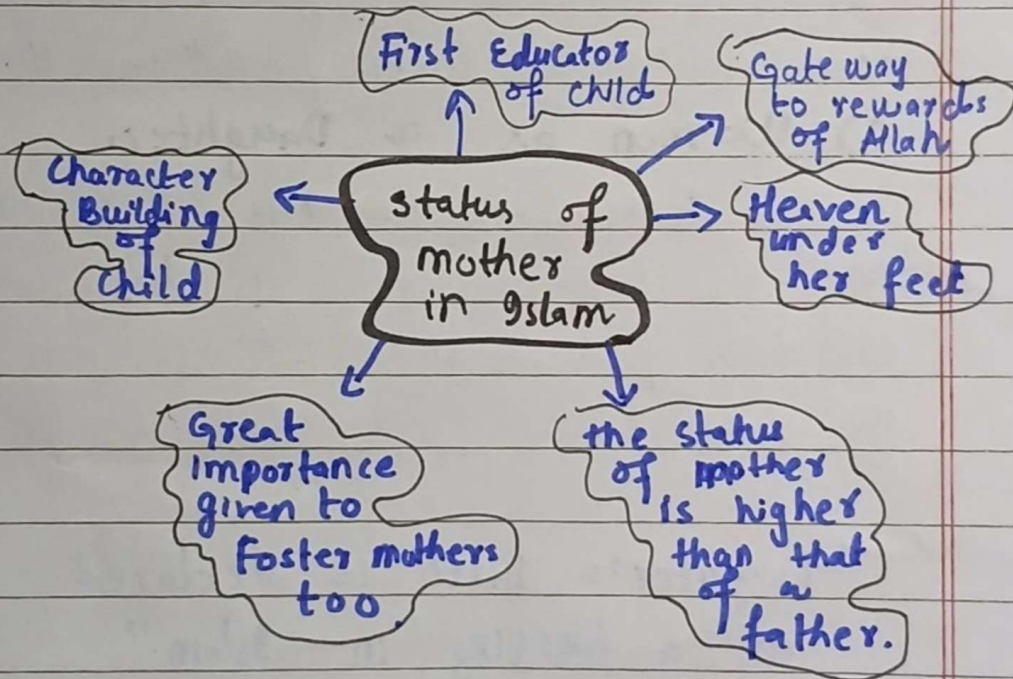 First Educator
of child
Gateway
to rewards
of Allah
Character
Building
of
Child
status of
mother
in Islam
Heaven
under
her feet
Great
importance
given to
Foster mothers
too.
the status
of mother
is higher
than that
of a
father.